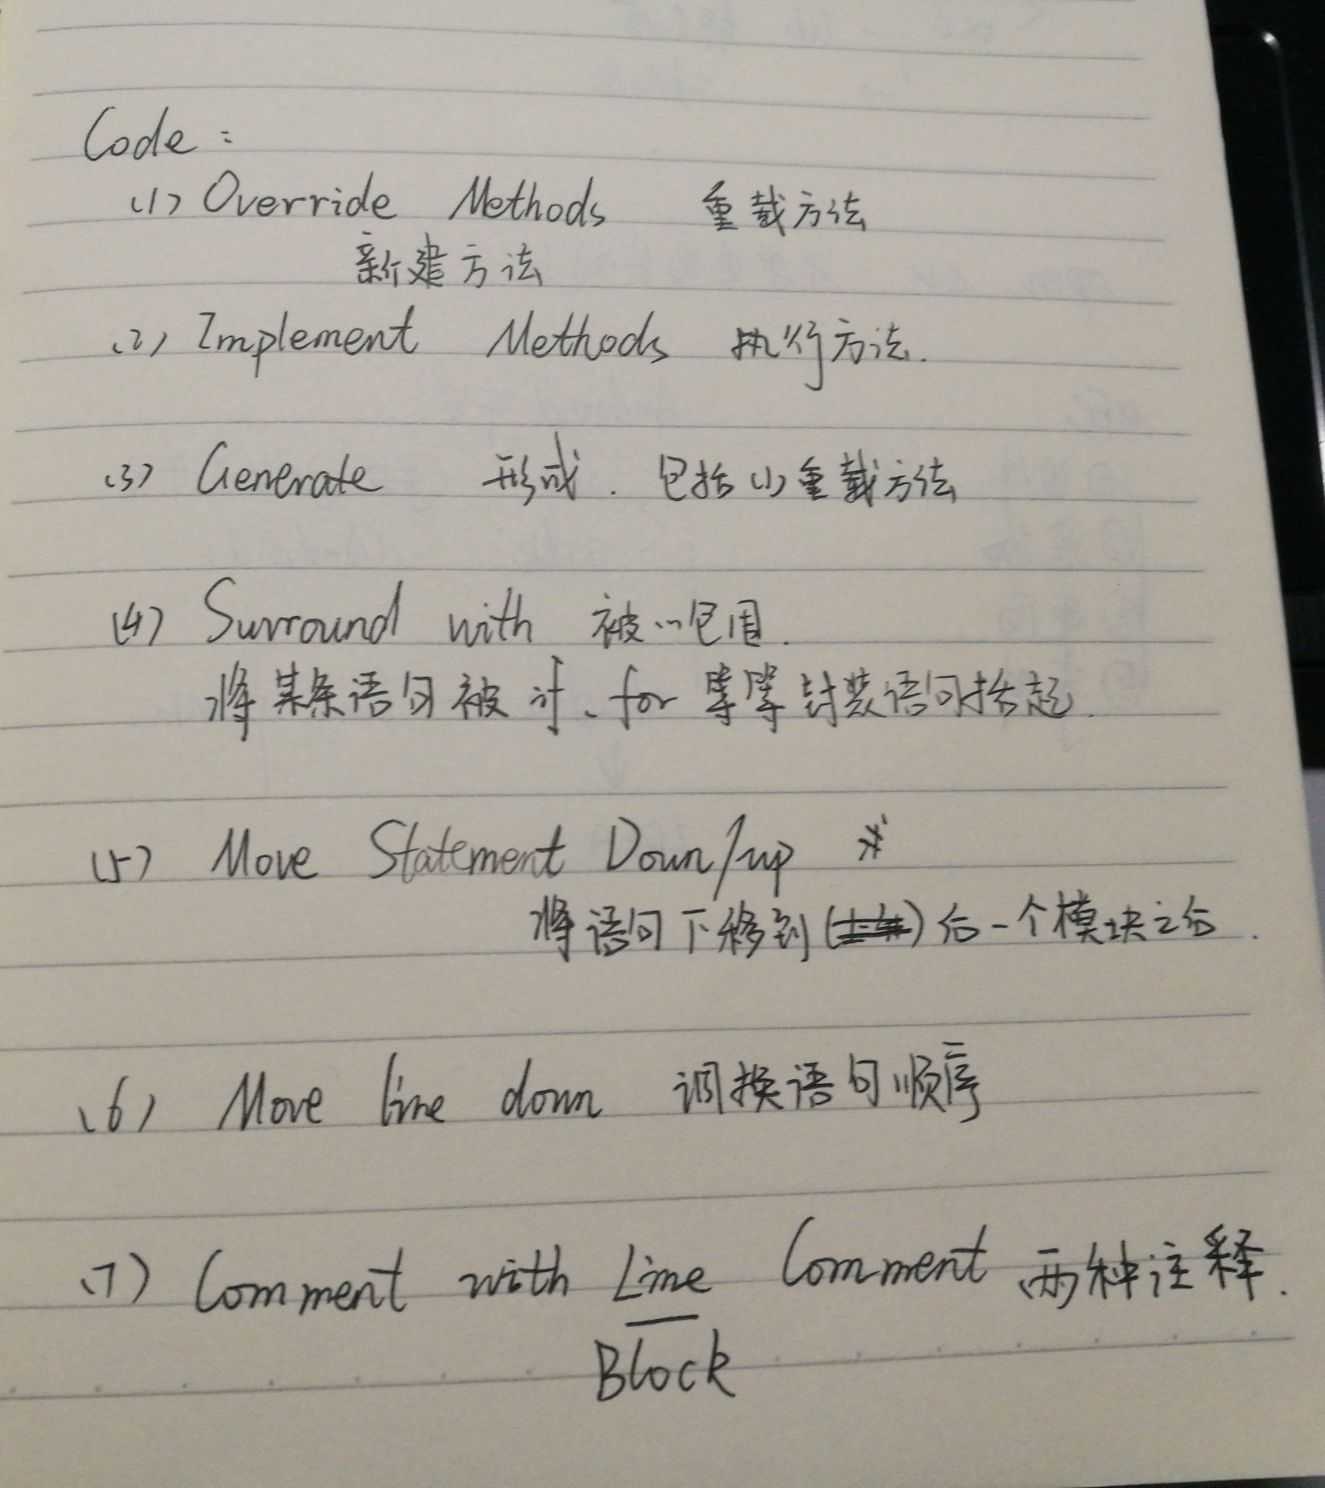 Code:
(1) Override Methods 重载方法
新建方法
(2) Implement Methods 执行方法.
(3) Generate 形成. 包括(1)重载方法
(4) Surround with 被…包围.
将某条语句被 if、for 等等封装语句括起.
(5) Move Statement Down/up
将语句下移到( )后一个模块之后.
(6) Move line down 调换语句顺序
(7) Comment with Line Comment 两种注释.
Block